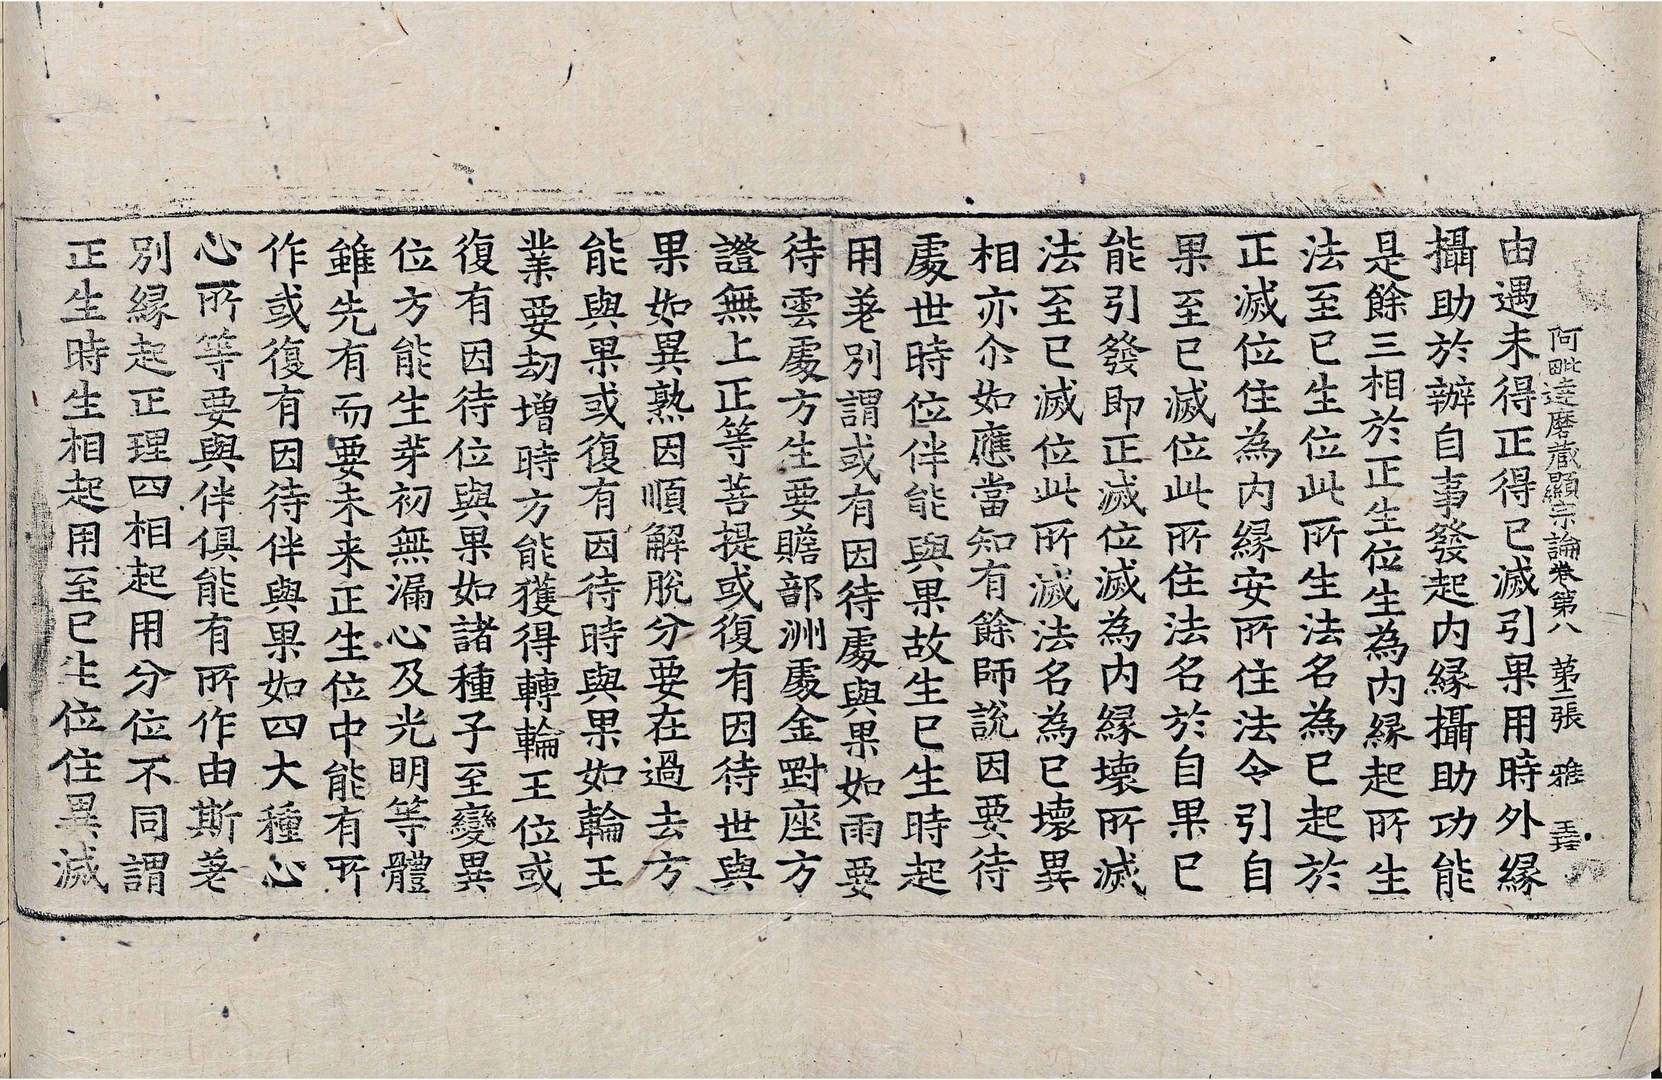 阿毗達磨藏顯宗論卷第八　第二張　雅
由遇未得正得已滅引果用時外緣
攝助於辦自事發起内緣攝助功能
是餘三相於正生位生為内緣起所生
法至已生位此所生法名為已起於
正滅位住為内緣安所住法令引自
果至已滅位此所住法名於自果已
能引發即正滅位滅為内緣壞所滅
法至已滅位此所滅法名為已壞異
相亦尒如應當知有餘師說因要待
處世時位伴能與果故生已生時起
用差別謂或有因待處與果如雨要
待雲處方生要贍部洲處金剛座方
證無上正等菩提或復有因待世與
果如異熟因順解脫分要在過去方
能與果或復有因待時與果如輪王
業要劫增時方能獲得轉輪王位或
復有因待位與果如諸種子至變異
位方能生芽初無漏心及光明等體
雖先有而要未来正生位中能有所
作或復有因待伴與果如四大種心
心所等要與伴俱能有所作由斯差
別緣起正理四相起用分位不同謂
正生時生相起用至已生位住異滅